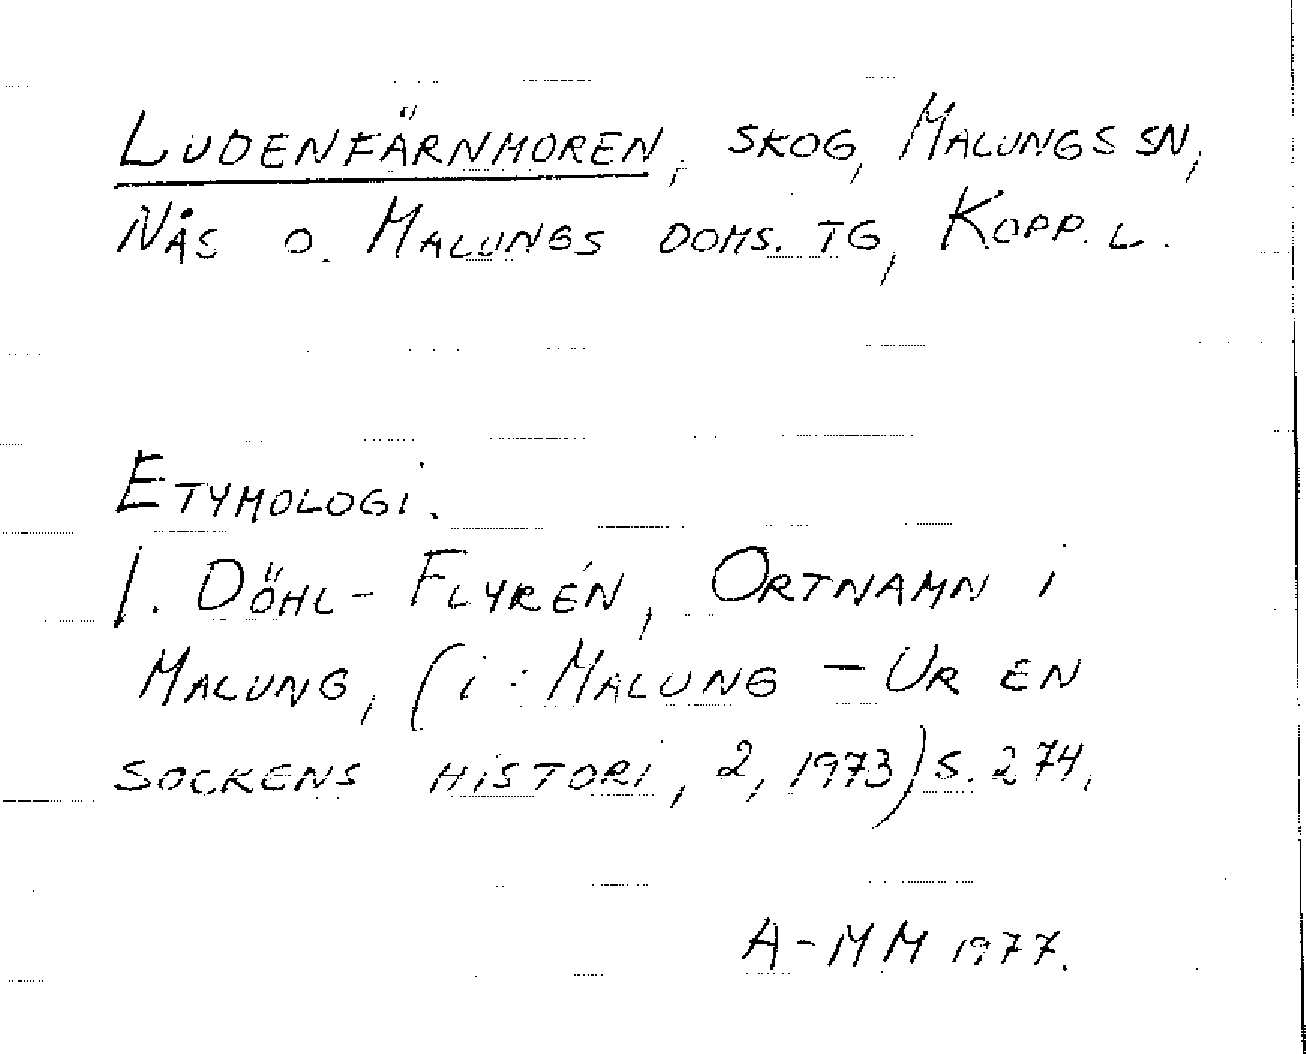 LUDENFÄRNMOREN, SKOG, MALUNGS SN,
NÅS O. MALUNGS DOMS. TG, KOPP. L.
ETYMOLOGI.
I. DÖHL-FLYRÉN, ORTNAMN I
MALUNG, (I: MALUNG – UR EN
SOCKENS HISTORI, 2, 1973) S. 274.
A-MM 1977.